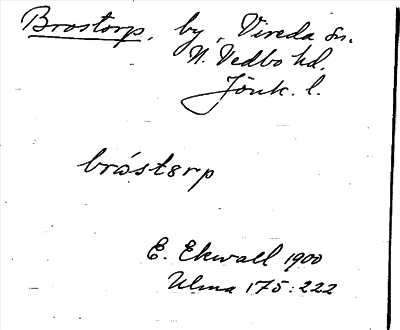 Brostorp, by, Vireda sn.
N. Vedbo hd.
Jönk. l.
bròstərp
E. Ekwall 1900
Ulma 175:222